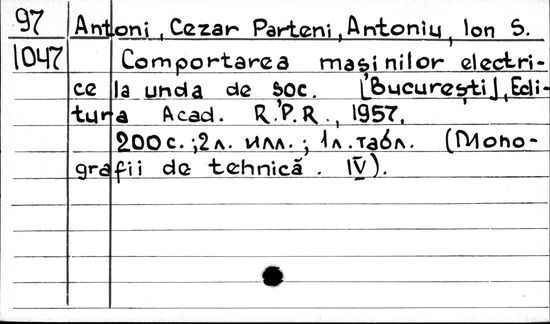 97 Antoni, Cezar Parteni, Antoniu, Ion S.
1047 Comportarea mașinilor electri-
ce la unda de șoc. [București], Edi-
tura Acad. R.P.R., 1957.
200 с.; 2 л. илл.; 1 л. табл. (Mono-
grafii de tehnică. IV).